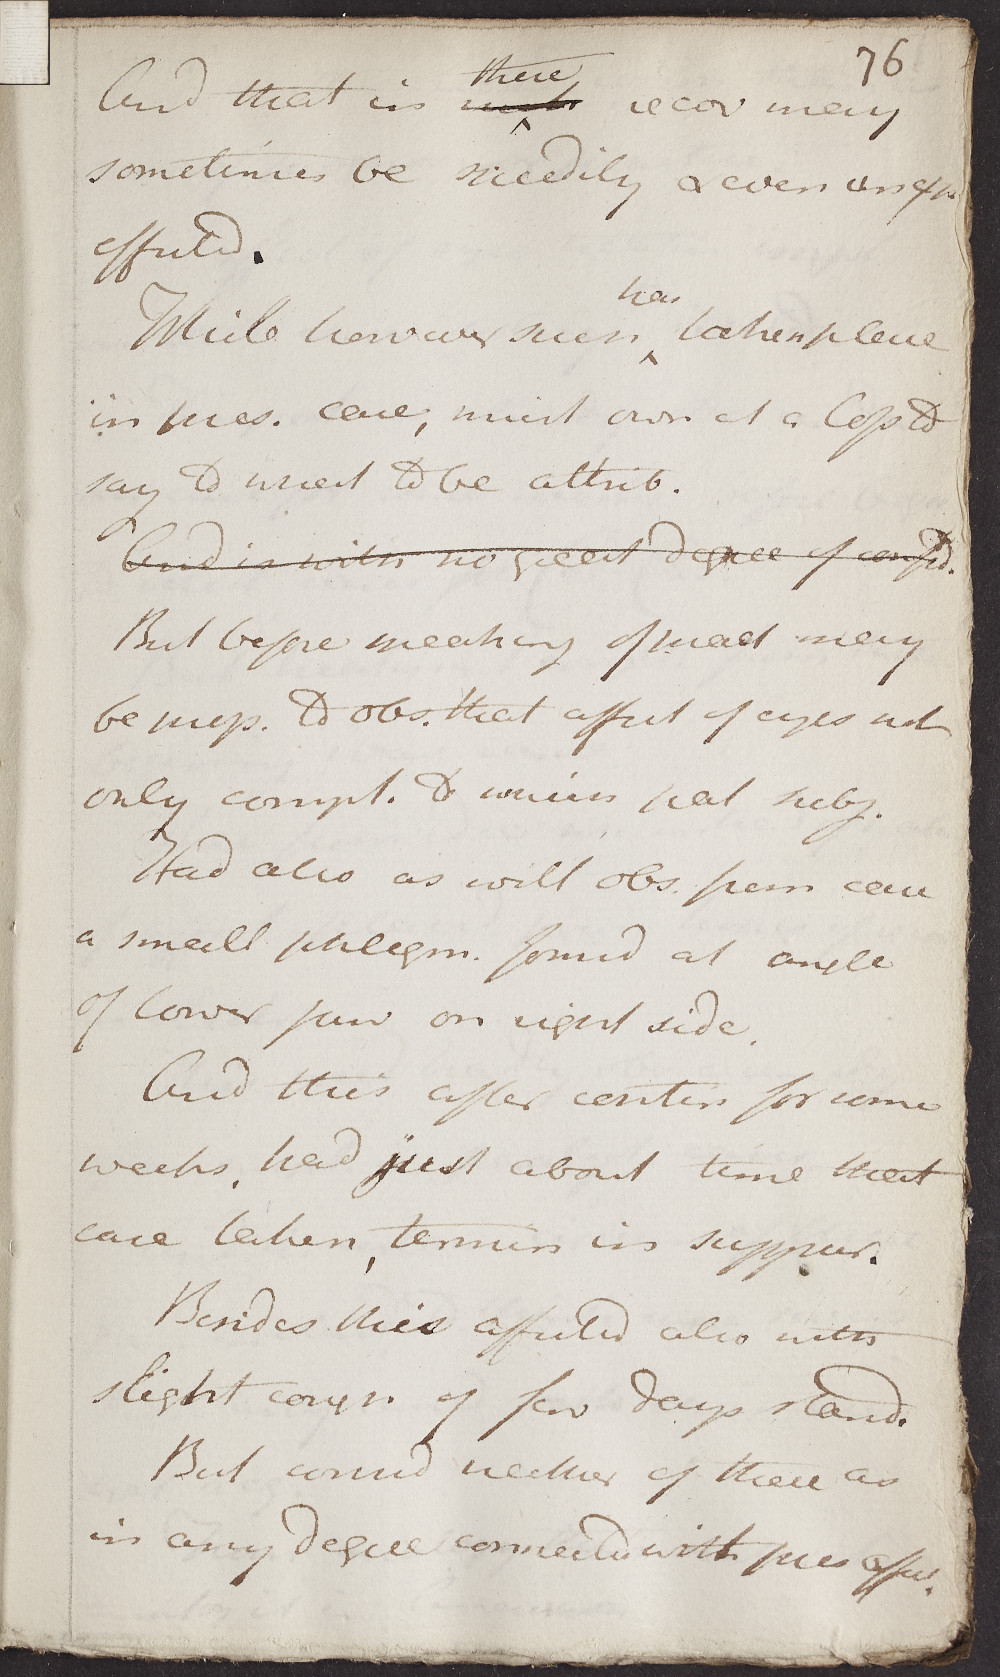 76
And that in these recov may
sometimes be speedily & even unexp.
effected.
While however such has taken place
in pres. case, must own at a loss to
say to what to be attrib.
And is with no great degree of confid.
But before speaking of pract may
be prop. to obs. that affect of eyes not
only compl. to which pat subj.
Had also as will obs. from case
a small phlegm. formed at angle
of lower jaw on right side.
And this after contin for some
weeks, had just about time that
case taken, termin in suppur.
Besides this affected also with
slight cough of few days stand.
But consid neither of these as
in any degree connected with pres affect.